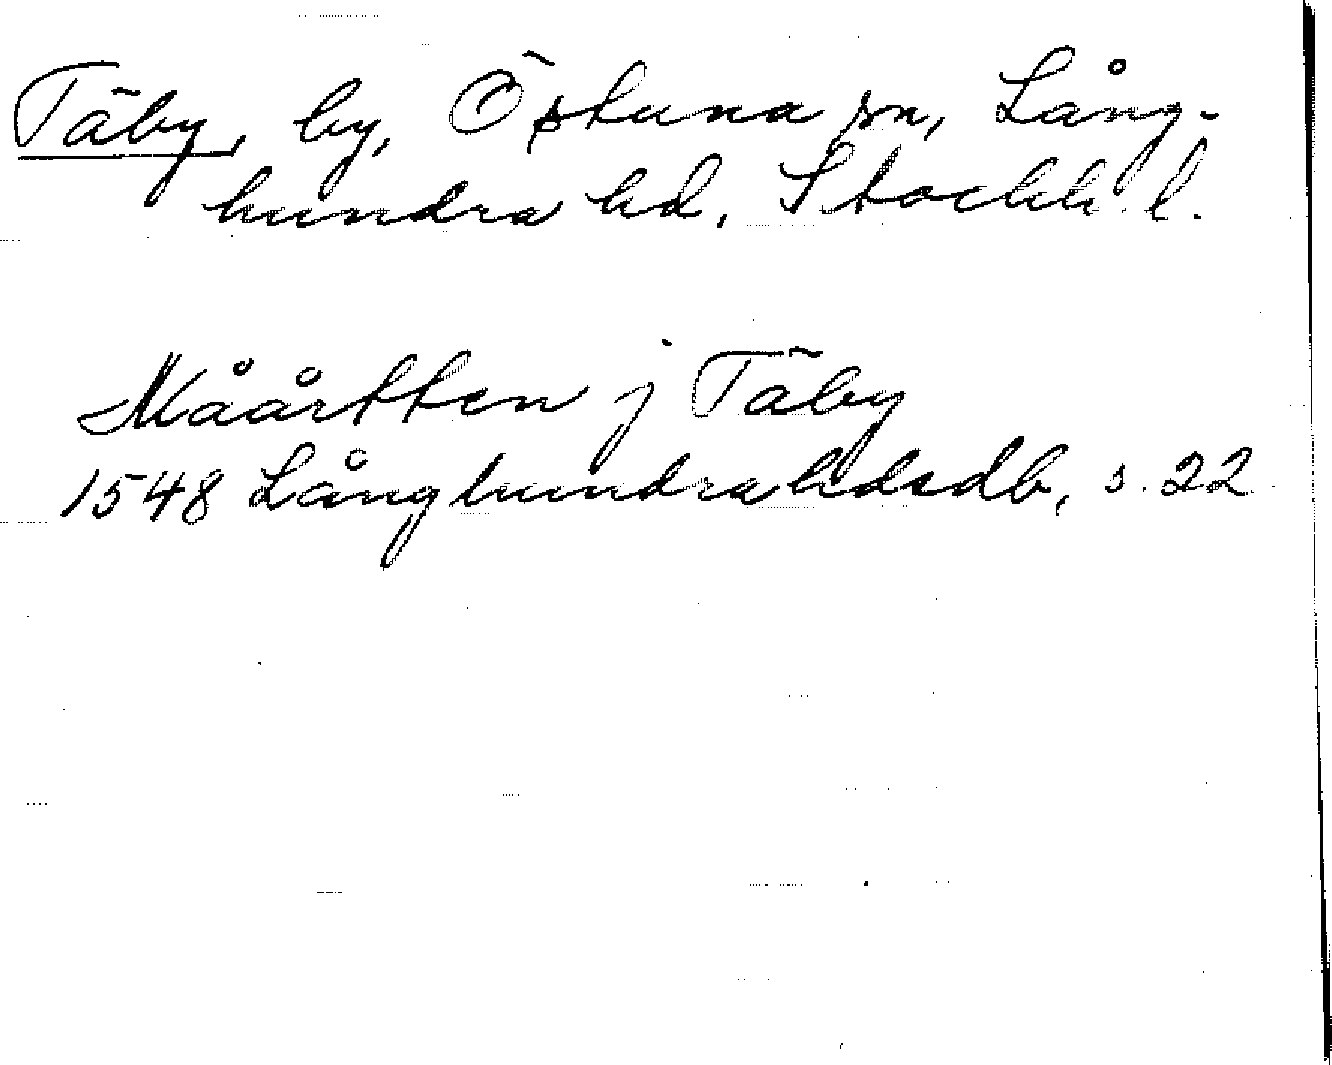 Täby, by, Östuna sn, Lång-
hundra hd, Stockh. l.
Måårtten j Täby
1548 Långhundrahdsdb, s. 22